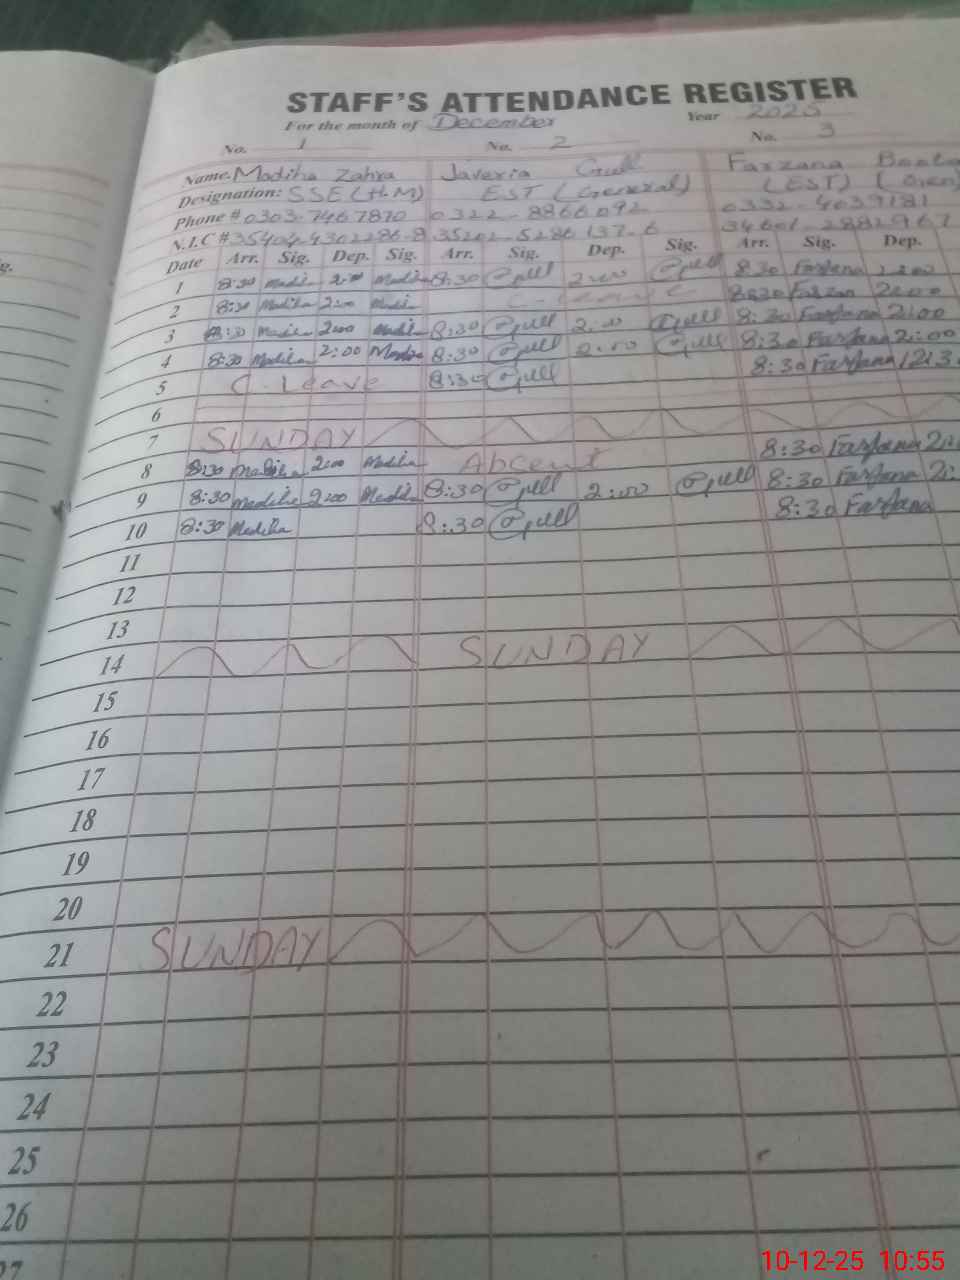 STAFF'S ATTENDANCE REGISTER
For the month of December Year 2025
No. 1 No. 2 No. 3
Name. Madiha Zahra Javeria Gull Farzana
Designation: SSE (H.M) EST (General) (EST)
Phone # 0303-7467870 0322-8866092 0332-4039181
N.I.C # 35202-5286137-6
Date Arr. Sig. Dep. Sig. Arr. Sig. Dep. Sig. Arr. Sig. Dep.
1 8:30 Madi 2:00 Madiha 8:30 Gull 2:00 Gull 8:30 Farzana
2 8:30 Madiha 2:00 Madi C-Leave 8:30 Farzan 2:00
3 8:30 Madiha 2:00 Madi 8:30 Gull 2:00 Gull 8:30 Farzana 2:00
4 8:30 Madiha 2:00 8:30 Gull 2:00 Gull 8:30 Farzana 2:00
5 C-Leave 8:30 Gull 8:30 Farzana
6
7 SUNDAY
8 8:30 Madiha 2:00 Madiha Abcent 8:30 Farzana
9 8:30 Madiha 2:00 Madiha 8:30 Gull 2:00 Gull 8:30 Farzana
10 8:30 Madiha 8:30 Gull 8:30 Farzana
11
12
13
14 SUNDAY
15
16
17
18
19
20
21 SUNDAY
22
23
24
25
26
27
10-12-25 10:55